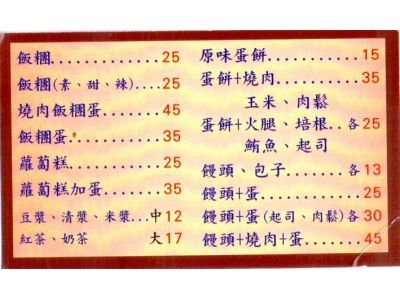 飯糰............25
飯糰(素、甜、辣)....25
燒肉飯糰蛋.......45
飯糰蛋..........35
蘿蔔糕..........25
蘿蔔糕加蛋.......35
豆漿、清漿、米漿...中12
紅茶、奶茶 大17
原味蛋餅..........15
蛋餅+燒肉.........35
玉米、肉鬆
蛋餅+火腿、培根..各25
鮪魚、起司
饅頭、包子......各13
饅頭+蛋..........25
饅頭+蛋(起司、肉鬆)各30
饅頭+燒肉+蛋.......45